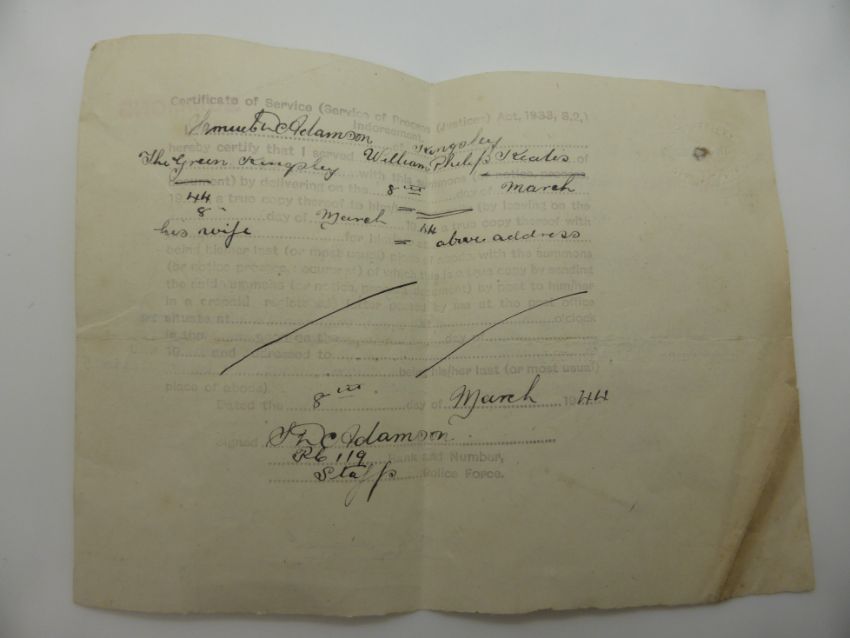 Certificate of Service (Service of Process (Justices) Act, 1933, S.2.)
Indorsement.
Adamson of Kingsley
hereby certify that I served William Philips Keates of
The Green Kingsley with this summons
document) by delivering on the 8 day of March
1944 a true copy thereof to (by leaving on the
8 day of March 1944 a true copy thereof with
his wife for him at above address
being his/her last (or most usual) place of abode with the summons
(or notice process, document) of which this is a true copy by sending
the said summons (or notice, document) by post to him/her
in a letter posted by me at the post office
situate at o'clock
in the on the day of
19 and addressed to
being his/her last (or most usual)
place of abode).
Dated the 8 day of March 1944
Signed Adamson
Pc 119 Rank and Number,
Staffs Police Force.